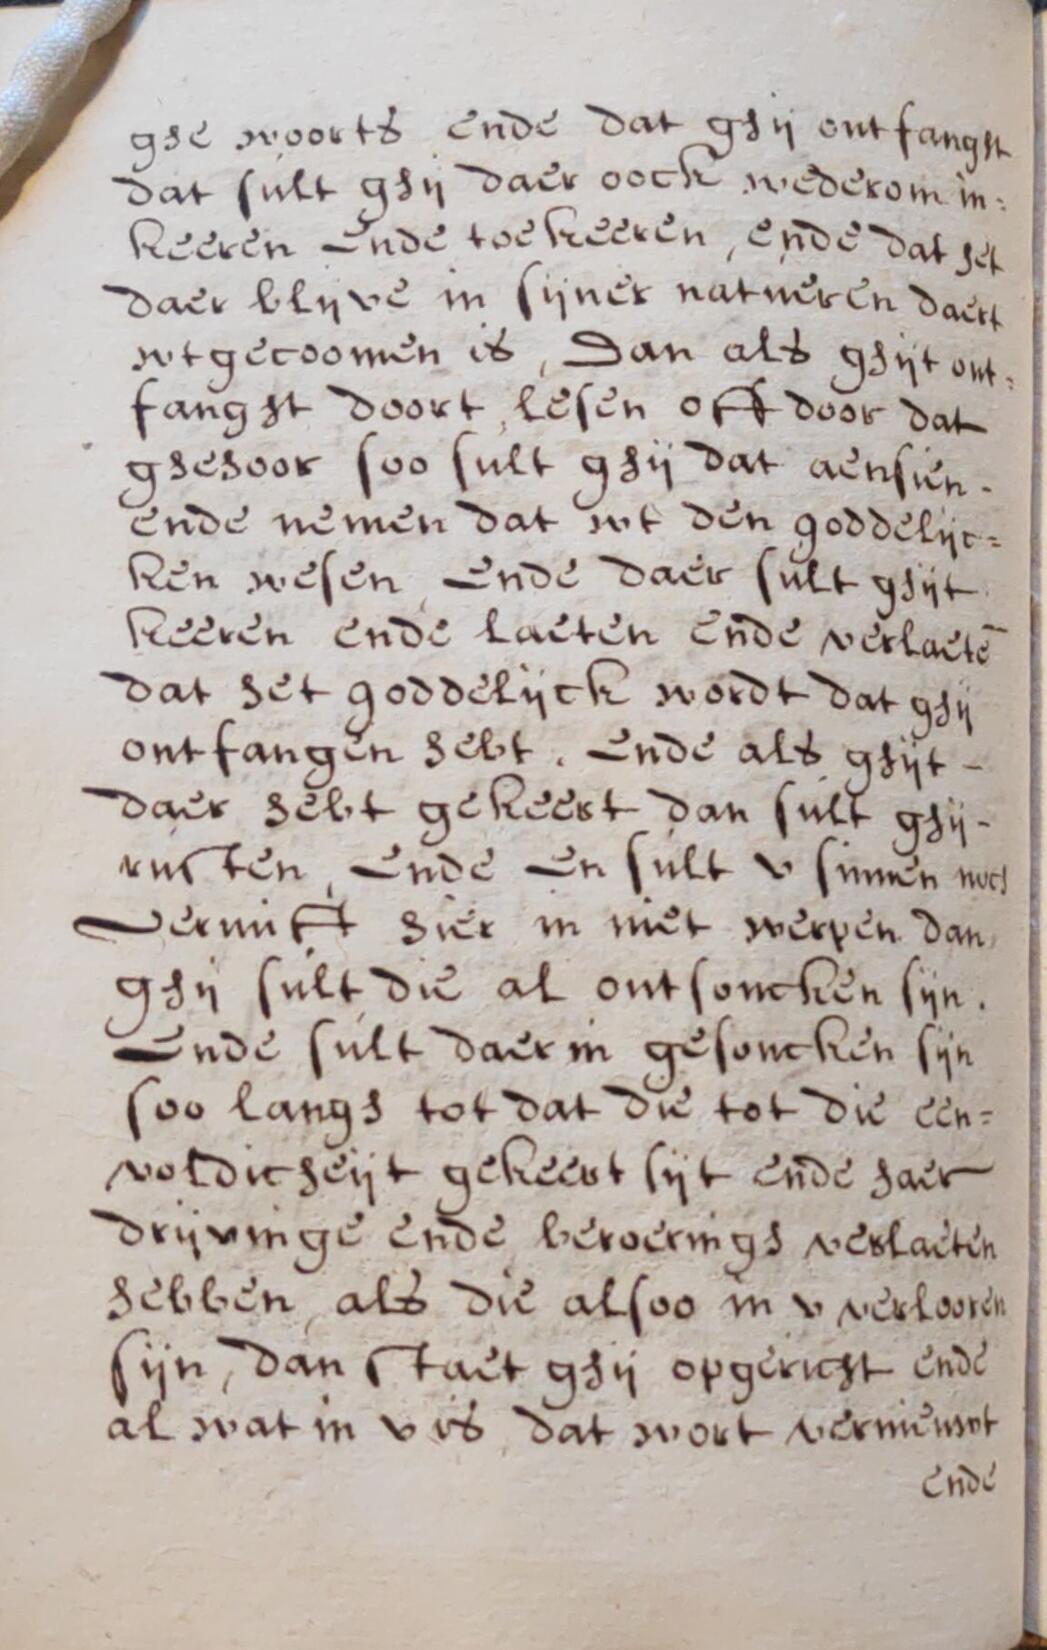 ghe woorts ende dat ghij ontfanght
dat sult ghij daer oock wederom in:
keeren Ende toekeeren, ende dat het
daer blijve in sijner natueren daert
wtgecoomen is, Dan als ghijt ont:
fanght doort lesen oft door dat
ghehoor soo sult ghij dat aensien -
ende nemen dat wt den goddelijc=
ken wesen Ende daer sult ghijt
keeren ende laeten ende verlaetē
dat het goddelijck wordt dat ghij
ontfangen hebt. Ende als ghijt -
daer hebt gekeert dan sult ghij -
rusten, Ende En sult v sinnen noch
Vernuft hier in niet werpen dan
ghij sult die al ontsoncken sijn.
Ende sult daer in gesoncken sijn
soo langh tot dat die tot die een=
voldicheijt gekeert sijt ende haer
drijvinge ende beroeringh verlaeten
hebben als die alsoo in v verlooren
sijn, dan staet ghij opgericht ende
al wat in v is dat wort vernieuwt
ende